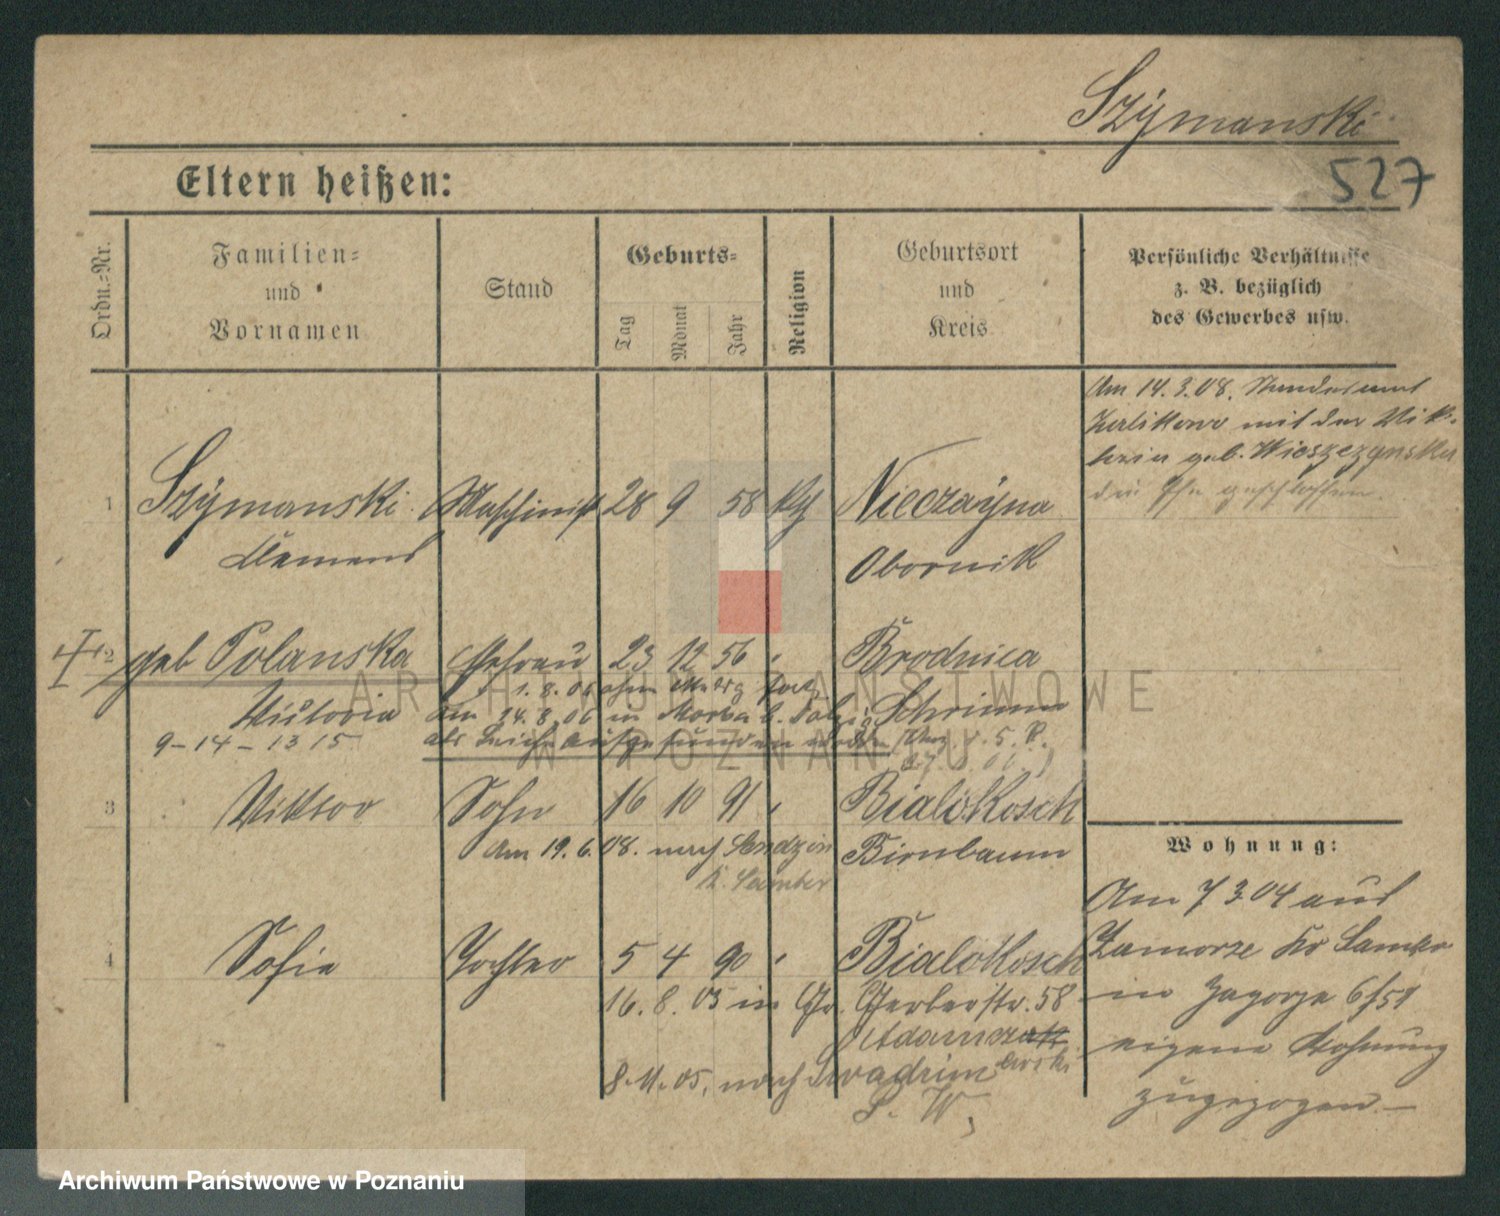 Szymanski
527
Eltern heißen:
Ordn.-Nr.
Familien-
und
Vornamen
Stand
Geburts-
Tag
Monat
Jahr
Religion
Geburtsort
und
Kreis
Persönliche Verhältnisse
z. B. bezüglich
des Gewerbes usw.
Am 14.3.08. Standesamt
mit der Vik-
toria geb. Wieszczynska
die Ehe geschlossen.
1 Szymanski Maschinist 28 9 58 Nieczayna
Clemens Obornik
2 geb Polanska Ehefrau 23 12 56 " Brodnica
1.8.06 ohne
Victoria Am 24.8.06 in Schrimm
9-14-1315 als Leiche aufgefunden
3 Viktor Sohn 16 10 91 " Bialokosch
Am 19.6.08. nach Birnbaum
K. Samter
4 Sofie Tochter 5 4 90 " Bialokosch
16.8.05 in Gr. Gerberstr. 58
8.11.05. nach Swadzim
P. W.
Wohnung:
Am 7 3 04 aus
Zamorze Kr Samter
in Zagorze 6/51
eigene Wohnung
zugezogen.—
ARCHIWUM PAŃSTWOWE
W POZNANIU
Archiwum Państwowe w Poznaniu